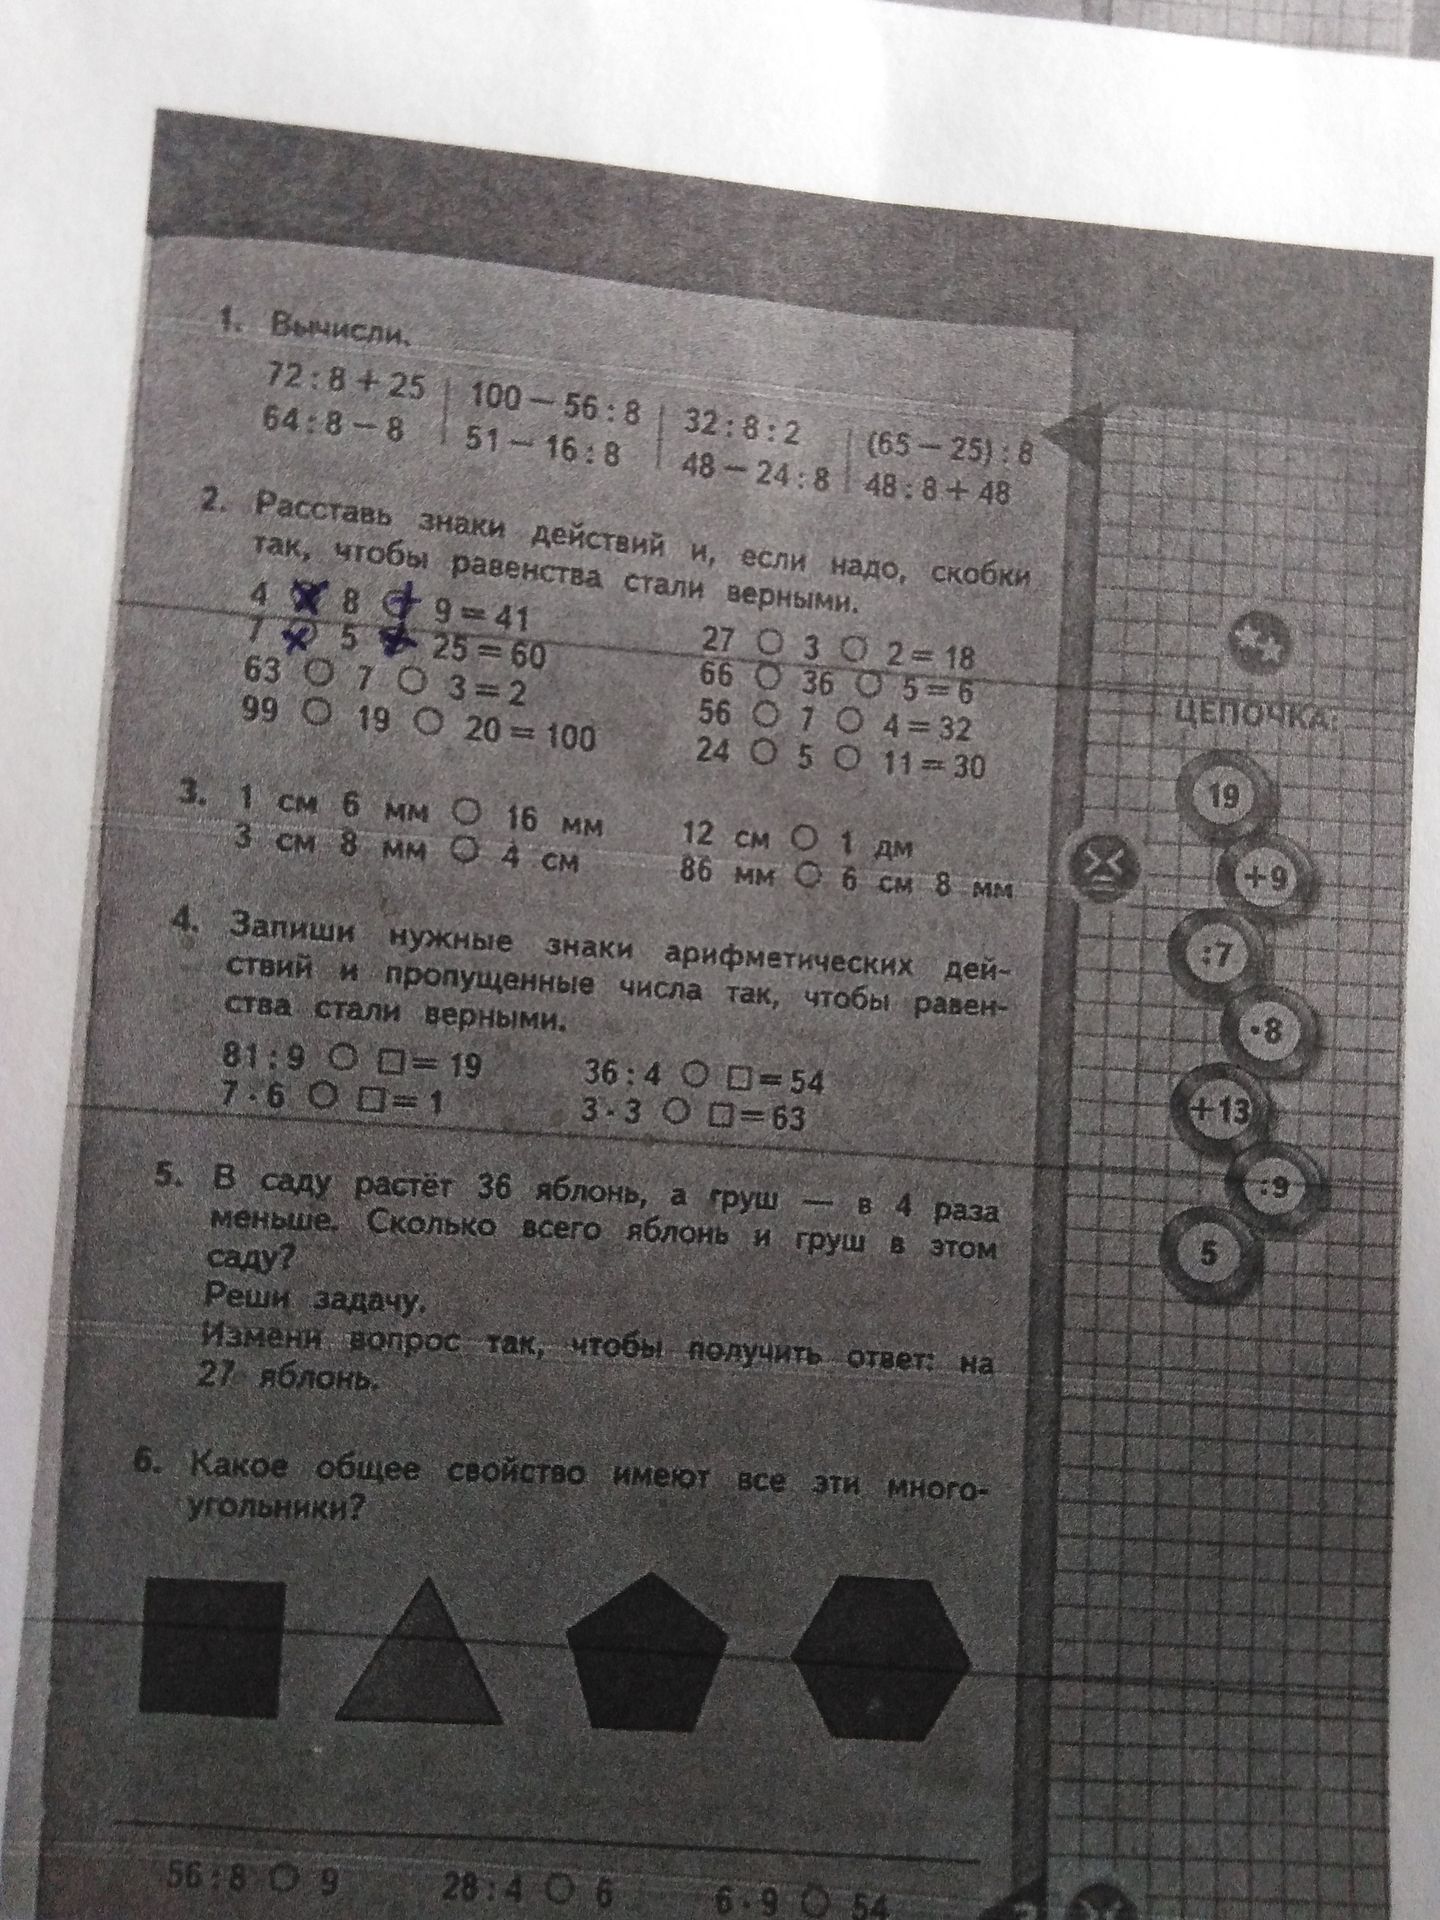 1. Вычисли.
72 : 8 + 25 | 100 – 56 : 8 | 32 : 8 : 2 | (65 – 25) : 8
64 : 8 – 8 | 51 – 16 : 8 | 48 – 24 : 8 | 48 : 8 + 48
2. Расставь знаки действий и, если надо, скобки
так, чтобы равенства стали верными.
4 × 8 + 9 = 41
7 × 5 + 25 = 60
63 ○ 7 ○ 3 = 2
99 ○ 19 ○ 20 = 100
27 ○ 3 ○ 2 = 18
66 ○ 36 ○ 5 = 6
56 ○ 7 ○ 4 = 32
24 ○ 5 ○ 11 = 30
3. 1 см 6 мм ○ 16 мм
3 см 8 мм ○ 4 см
12 см ○ 1 дм
86 мм ○ 6 см 8 мм
4. Запиши нужные знаки арифметических дей-
ствий и пропущенные числа так, чтобы равен-
ства стали верными.
81 : 9 ○ □ = 19
7 · 6 ○ □ = 1
36 : 4 ○ □ = 54
3 · 3 ○ □ = 63
5. В саду растёт 36 яблонь, а груш — в 4 раза
меньше. Сколько всего яблонь и груш в этом
саду?
Реши задачу.
Измени вопрос так, чтобы получить ответ: на
27 яблонь.
6. Какое общее свойство имеют все эти много-
угольники?
56 : 8 ○ 9 28 : 4 ○ 6 6 · 9 ○ 54
ЦЕПОЧКА:
19
+9
:7
·8
+13
:9
5